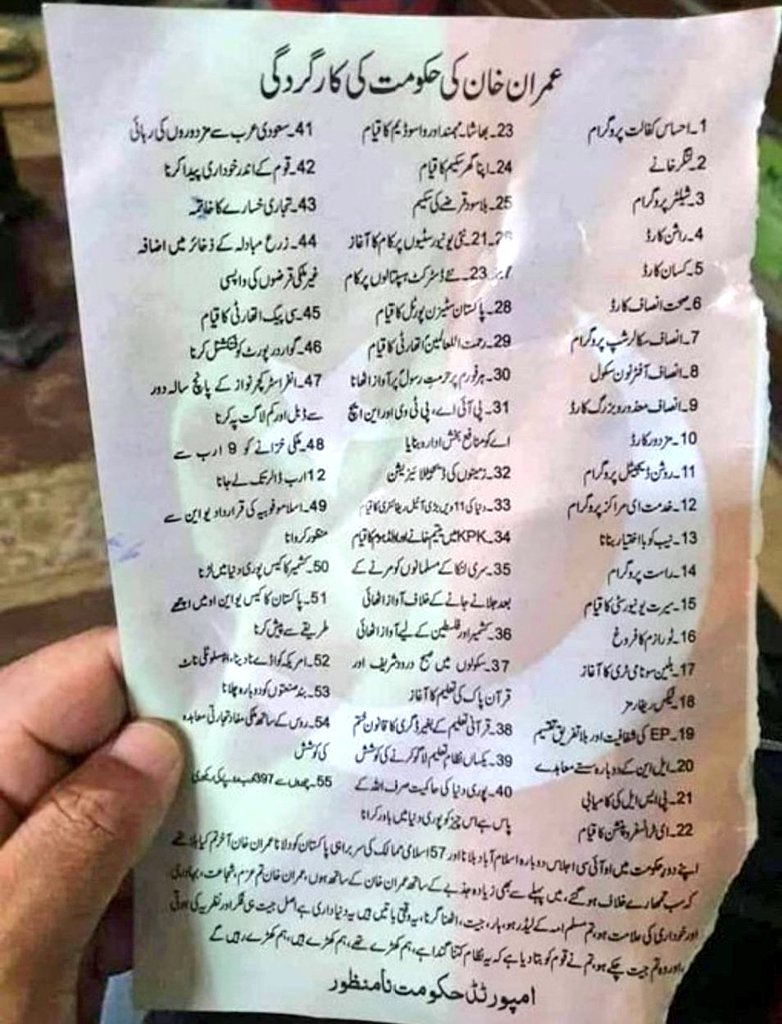 عمران خان کی حکومت کی کارگردگی
1۔ احساس کفالت پروگرام
2۔ لنگر خانے
3۔ شیلٹر پروگرام
4۔ راشن کارڈ
5۔ کسان کارڈ
6۔ صحت انصاف کارڈ
7۔ انصاف سکالرشپ پروگرام
8۔ انصاف آفٹر نون سکول
9۔ انصاف معذور و بزرگ کارڈ
10۔ مزدور کارڈ
11۔ روشن ڈیجیٹل پروگرام
12۔ خدمت ای مراکز پروگرام
13۔ نیب کو بااختیار بنانا
14۔ راست پروگرام
15۔ سیرت یونیورسٹی کا قیام
16۔ ٹورازم کا فروغ
17۔ بلین سونامی ٹری کا آغاز
18۔ ٹیکس ریفارمز
19۔ EP کی شفافیت اور بلا تفریق تقسیم
20۔ ایل این کے دوبارہ سستے معاہدے
21۔ پی ایس ایل کی کامیابی
22۔ ای ٹرانسفر و پنشن کا قیام
23۔ بھاشا۔ مہمند اور داسو ڈیم کا قیام
24۔ اپنا گھر سکیم کا قیام
25۔ بلاسود قرضے کی سکیم
26۔ 21 نئی یونیورسٹیوں پر کام کا آغاز
23۔ نئے ڈسٹرکٹ ہسپتالوں پر کام
28۔ پاکستان سٹیزن پورٹل کا قیام
29۔ رحمت اللعالمین اتھارٹی کا قیام
30۔ ہر فورم پر حرمت رسول پر آواز اٹھانا
31۔ پی آئی اے، پی ٹی وی اور این ایچ
اے کو منافع بخش ادارہ بنایا
32۔ زمینوں کی ڈیجیٹلائیزیشن
33۔ دنیا کی 11 ویں بڑی آئل ریفائنری کا قیام
34۔ KPK میں یتیم خانے اور اولڈ ہوم کا قیام
35۔ سری لنکا کے مسلمانوں کو مرنے کے
بعد جلائے جانے کے خلاف آواز اٹھائی
36۔ کشمیر اور فلسطین کے لیے آواز اٹھائی
37۔ سکولوں میں صبح درود شریف اور
قرآن پاک کی تعلیم کا آغاز
38۔ قرآنی تعلیم کے بغیر ڈگری کا قانون ختم
39۔ یکساں نظام تعلیم لاگو کرنے کی کوشش
40۔ پوری دنیا کی حاکمیت صرف اللہ کے
پاس ہے اس چیز کو پوری دنیا میں باور کرانا
41۔ سعودی عرب سے مزدوروں کی رہائی
42۔ قوم کے اندر خوداری پیدا کرنا
43۔ تجاری خسارے کا خاتمہ
44۔ زرع مبادلہ کے ذخائر میں اضافہ
غیر ملکی قرضوں کی واپسی
45۔ سی پیک اتھارٹی کا قیام
46۔ گوادر پورٹ کو فنکشنل کرنا
47۔ انفراسٹرکچر نواز کے پانچ سالہ دور
سے ڈبل اور کم لاگت پہ کرنا
48۔ ملکی خزانے کو 9 ارب سے
12 ارب ڈالر تک لے جانا
49۔ اسلامو فوبیہ کی قرارداد یو این سے
منظور کروانا
50۔ کشمیر کا کیس پوری دنیا میں لڑنا
51۔ پاکستان کا کیس یو این او میں اچھے
طریقے سے پیش کرنا
52۔ امریکہ کو اڈے نا دینا، ابسلوٹلی ناٹ
53۔ بند صنعتوں کو دوبارہ چلانا
54۔ روس کے ساتھ ملکی مفاد تجارتی معاہدہ
کی کوشش
55۔ چوروں سے 397 ارب روپے کی ریکوری
اپنے دور حکومت میں او آئی سی اجلاس دوبارہ اسلام آباد بلانا اور 57 اسلامی ممالک کی سربراہی پاکستان کو دلانا عمران خان آخر تم کیا بلا تھے
کہ سب تمھارے خلاف ہو گئے، میں پہلے سے بھی زیادہ جذبے کے ساتھ عمران خان کے ساتھ ہوں، عمران خان تم عزم، شجاعت، بہادری
اور خودداری کی علامت ہو، تم مسلم امہ کے لیڈر ہو، ہار، جیت، اٹھنا گرنا، یہ وقتی باتیں ہیں یہ دنیاداری ہے اصل جیت ہی فکر اور نظریہ کی ہوتی
اور وہ تم جیت چکے ہو، تم نے قوم کو بتا دیا ہے کہ یہ نظام کتنا گندا ہے، ہم کھڑے تھے، ہم کھڑے ہیں، ہم کھڑے رہیں گے
امپورٹڈ حکومت نامنظور